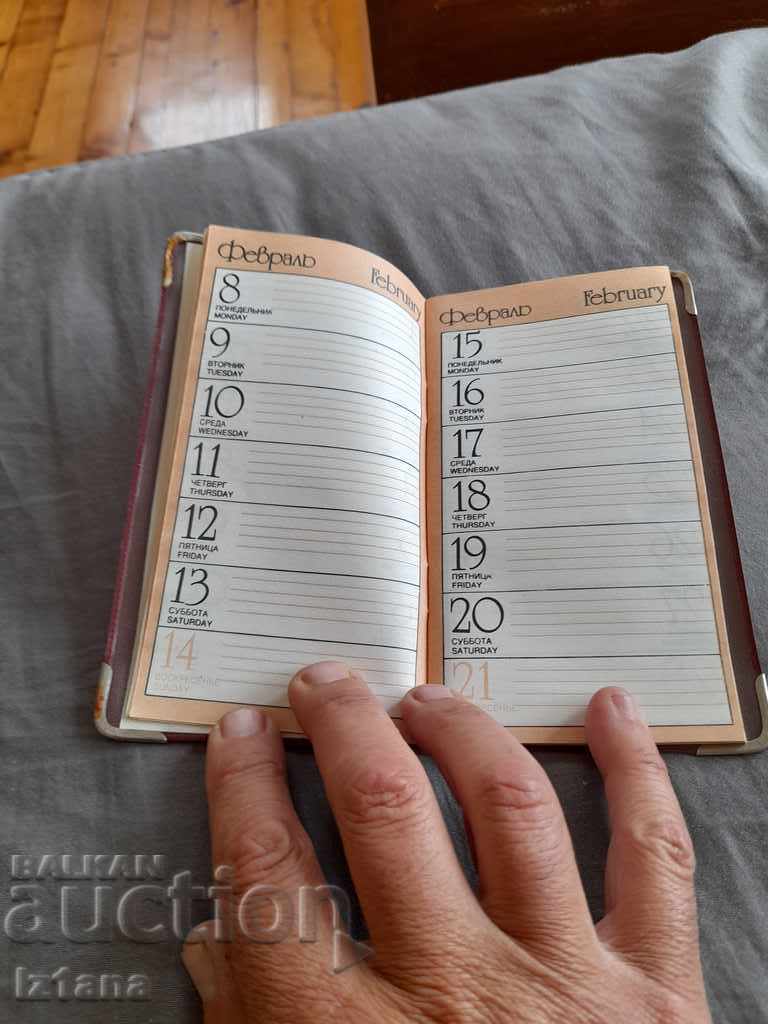 Февраль February
8
ПОНЕДЕЛЬНИК
MONDAY
9
ВТОРНИК
TUESDAY
10
СРЕДА
WEDNESDAY
11
ЧЕТВЕРГ
THURSDAY
12
ПЯТНИЦА
FRIDAY
13
СУББОТА
SATURDAY
14
ВОСКРЕСЕНЬЕ
SUNDAY
Февраль February
15
ПОНЕДЕЛЬНИК
MONDAY
16
ВТОРНИК
TUESDAY
17
СРЕДА
WEDNESDAY
18
ЧЕТВЕРГ
THURSDAY
19
ПЯТНИЦА
FRIDAY
20
СУББОТА
SATURDAY
21
BALKAN
auction
Iz1ana